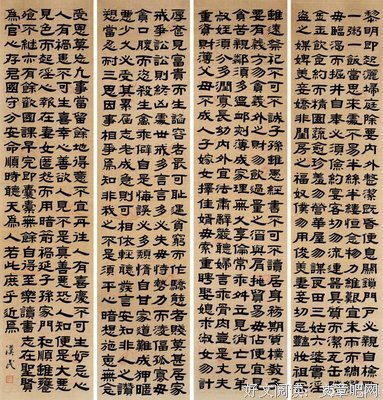 黎明即起灑掃庭除要內外整潔既昏便息關鎖門戶必親自檢點
一粥一飯當思來處不易半絲半縷恆念物力維艱宜未雨而綢繆
毋臨渴而掘井自奉必須儉約宴客切勿留連器具質而潔瓦缶勝
金玉飲食約而精園蔬愈珍羞勿營華屋勿謀良田三姑六婆實淫
盜之媒婢美妾嬌非閨房之福奴僕勿用俊美妻妾切忌豔妝祖宗
雖遠祭祀不可不誠子孫雖愚經書不可不讀居身務期質樸教子
要有義方勿貪意外之財勿飲過量之酒與肩挑貿易毋佔便宜見
貧苦親鄰須多溫卹刻薄成家理無久享倫常乖舛立見消亡兄弟
叔姪須分多潤寡長幼內外宜法肅辭嚴聽婦言乖骨肉豈是丈夫
重貲財薄父母不成人子嫁女擇佳婿毋索重聘娶媳求淑女勿計
厚奩見富貴而生諂容者最可恥遇貧窮而作驕態者賤莫甚居家
戒爭訟訟則終凶處世戒多言言多必失毋恃勢力而凌逼孤寡勿
貪口腹而恣殺生禽乖僻自是悔誤必多頹惰自甘家道難成狎暱
惡少久必受其累屈志老成急則可相依輕聽發言安知非人之譖
愬當忍耐三思因事相爭焉知非我之不是須平心暗想施惠勿念
受恩莫忘凡事當留餘地得意不宜再往人有喜慶不可生妒忌心
人有禍患不可生喜幸心善欲人見不是真善惡恐人知便是大惡
見色而起淫心報在妻女匿怨而用暗箭禍延子孫家門和順雖饔
飧不繼亦有餘歡國課早完即囊橐無餘自得至樂讀書志在聖賢
為官心存君國守分安命順時聽天為人若此庶乎近焉 漢民
好文阅读
章吧网